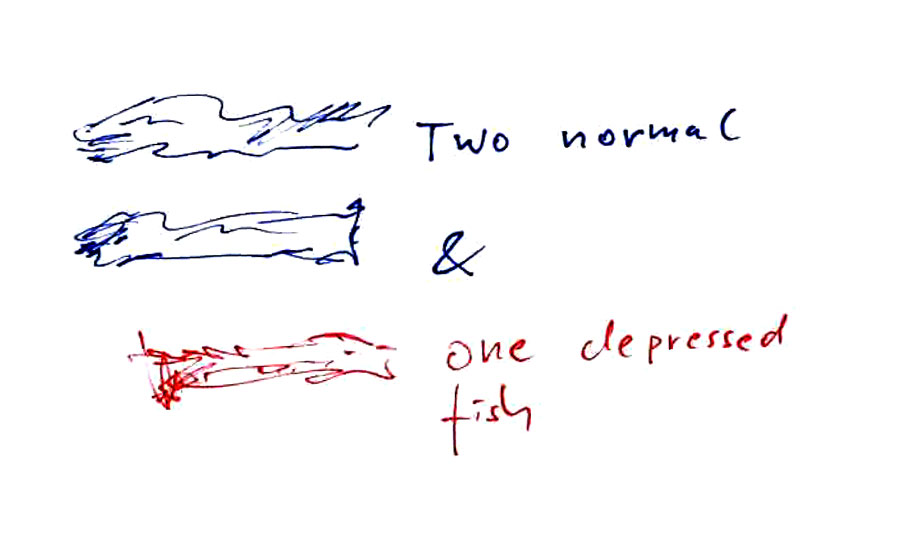 Two normal
&
one depressed
fish